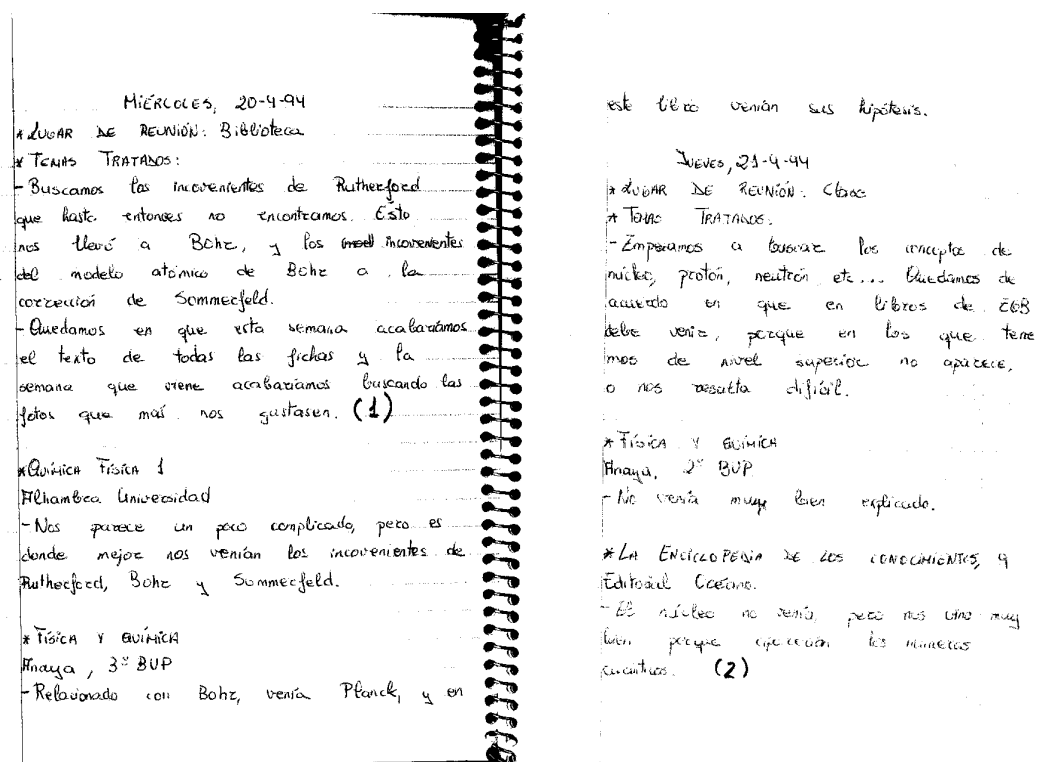 MIÉRCOLES, 20-4-94
* LUGAR DE REUNIÓN: Biblioteca
* TEMAS TRATADOS:
- Buscamos los incovenientes de Rutherford
que hasta entonces no encontramos. Esto
nos llevó a Bohr, y los incovenientes
del modelo atómico de Bohr a la
corrección de Sommerfeld.
- Quedamos en que esta semana acabaríamos
el texto de todas las fichas y la
semana que viene acabaríamos buscando las
fotos que más nos gustasen. (1)
* QUÍMICA FÍSICA 1
Alhambra Universidad
- Nos parece un poco complicado, pero es
donde mejor nos venían los incovenientes de
Rutherford, Bohr y Sommerfeld.
* FÍSICA Y QUÍMICA
Anaya, 3º BUP
- Relacionado con Bohr, venía Planck, y en
este libro venían sus hipótesis.
JUEVES, 21-4-94
* LUGAR DE REUNIÓN: Clase
* TEMAS TRATADOS:
- Empezamos a buscar los conceptos de
núcleo, protón, neutrón, etc... Quedamos de
acuerdo en que en libros de EGB
debe venir, porque en los que tene
mos de nivel superior no aparece,
o nos resulta difícil.
* FÍSICA Y QUÍMICA
Anaya, 2º BUP
- No venía muy bien explicado.
* LA ENCICLOPEDIA DE LOS CONOCIMIENTOS, 9
Editorial Océano.
- El núcleo no venía, pero nos vino muy
bien porque los números
cuánticos. (2)